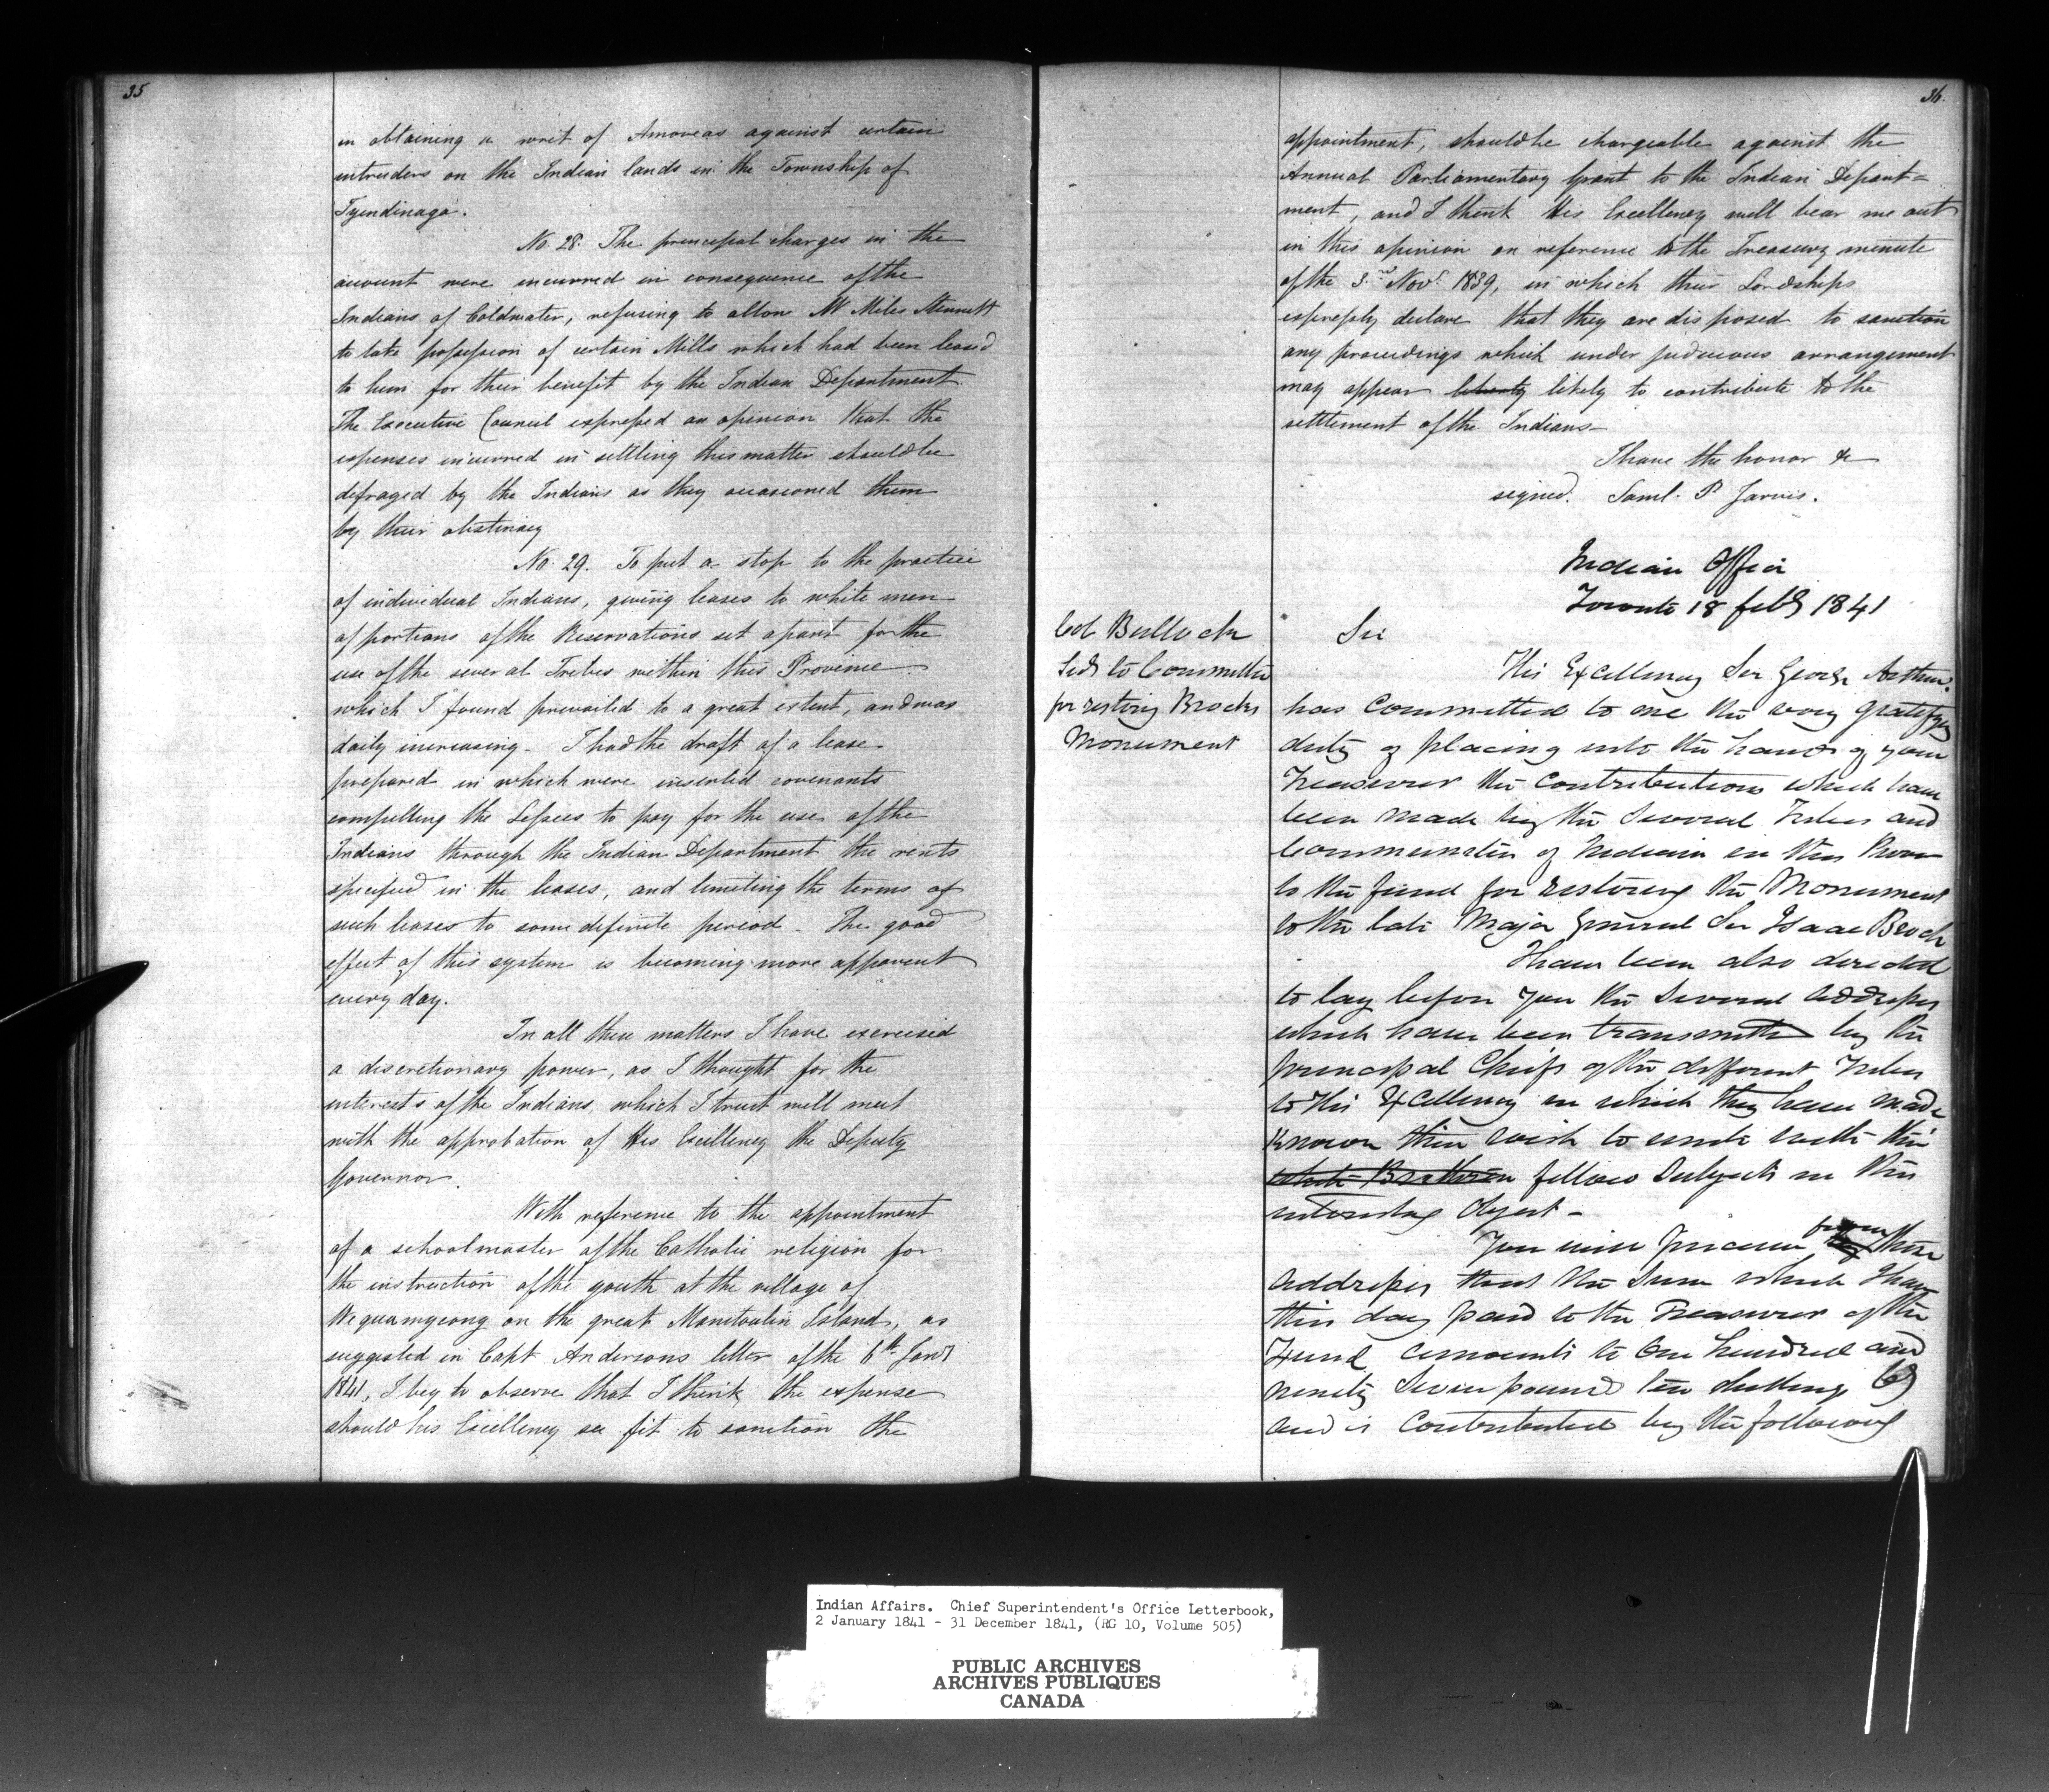 35
in obtaining a writ of Amoveas against certain
intruders on the Indian lands in the Township of
Tyendinaga.
No. 28. The principal charges in the
account were incurred in consequence of the
Indians of Coldwater, refusing to allow Mr Miles
to take possession of certain Mills which had been leased
to him for their benefit by the Indian Department.
The Executive Council expressed an opinion that the
expenses incurred in settling this matter should be
defrayed by the Indians as they occasioned them
by their obstinacy
No. 29. To put a stop to the practice
of individual Indians, giving leases to white men
of portions of the Reservations set apart for the
use of the several Tribes within this Province
which I found prevailed to a great extent, and was
daily increasing. I had the draft of a lease
prepared in which were inserted covenants
compelling the Lessees to pay for the use of the
Indians through the Indian Department the rents
specified in the leases, and limiting the terms of
such leases to some definite period. The good
effect of this system is becoming more apparent
every day.
In all these matters I have exercised
a discretionary power, as I thought for the
interests of the Indians, which I trust will meet
with the approbation of His Excellency the Deputy
Governor.
With reference to the appointment
of a schoolmaster of the Catholic religion for
the instruction of the youth at the village of
Wequamycong on the great Manitoulin Island, as
suggested in Capt Andersons letter of the 6th Jany
1841, I beg to observe that I think, the expense
should his Excellency see fit to sanction the
36.
appointment, should be chargeable against the
Annual Parliamentary Grant to the Indian Depart=
ment, and I think His Excellency will bear me out
in this opinion on reference to the Treasury minute
of the 3rd Novr 1839, in which their Lordships
expressly declare that they are disposed to sanction
any proceedings which under judicious arrangement
may appear likely to contribute to the
settlement of the Indians
I have the honor &c
signed. Saml. P Jarvis.
Indian Office
Toronto 18 feby 1841
Col Bullock
Sedy to Committee
for restoring Brocks
Monument
Sir
His Excellency Sir George Arthur.
has committed to me the very gratifyg
duty of placing into the hands of your
Treasurer the contributions which have
been made by the several Tribes and
Communities of Indians in this Prov
to the fund for restoring the Monument
to the late Major General Sir Isaac Brock
I have been also directed
to lay before you the several addresses
which have been transmitted by the
principal Chiefs of the different Tribes
to His Excellency in which they have made
known their wish to unite with their
white Brethren fellow subjects in this
interesting object -
You will perceive from these
addresses that the sum which I have
this day paid to the Treasurer of the
Fund amounts to One hundred and
ninety seven pounds ten shillings Cy
and is contributed by the following
Indian Affairs. Chief Superintendent's Office Letterbook,
2 January 1841 - 31 December 1841, (RG 10, Volume 505)
PUBLIC ARCHIVES
ARCHIVES PUBLIQUES
CANADA